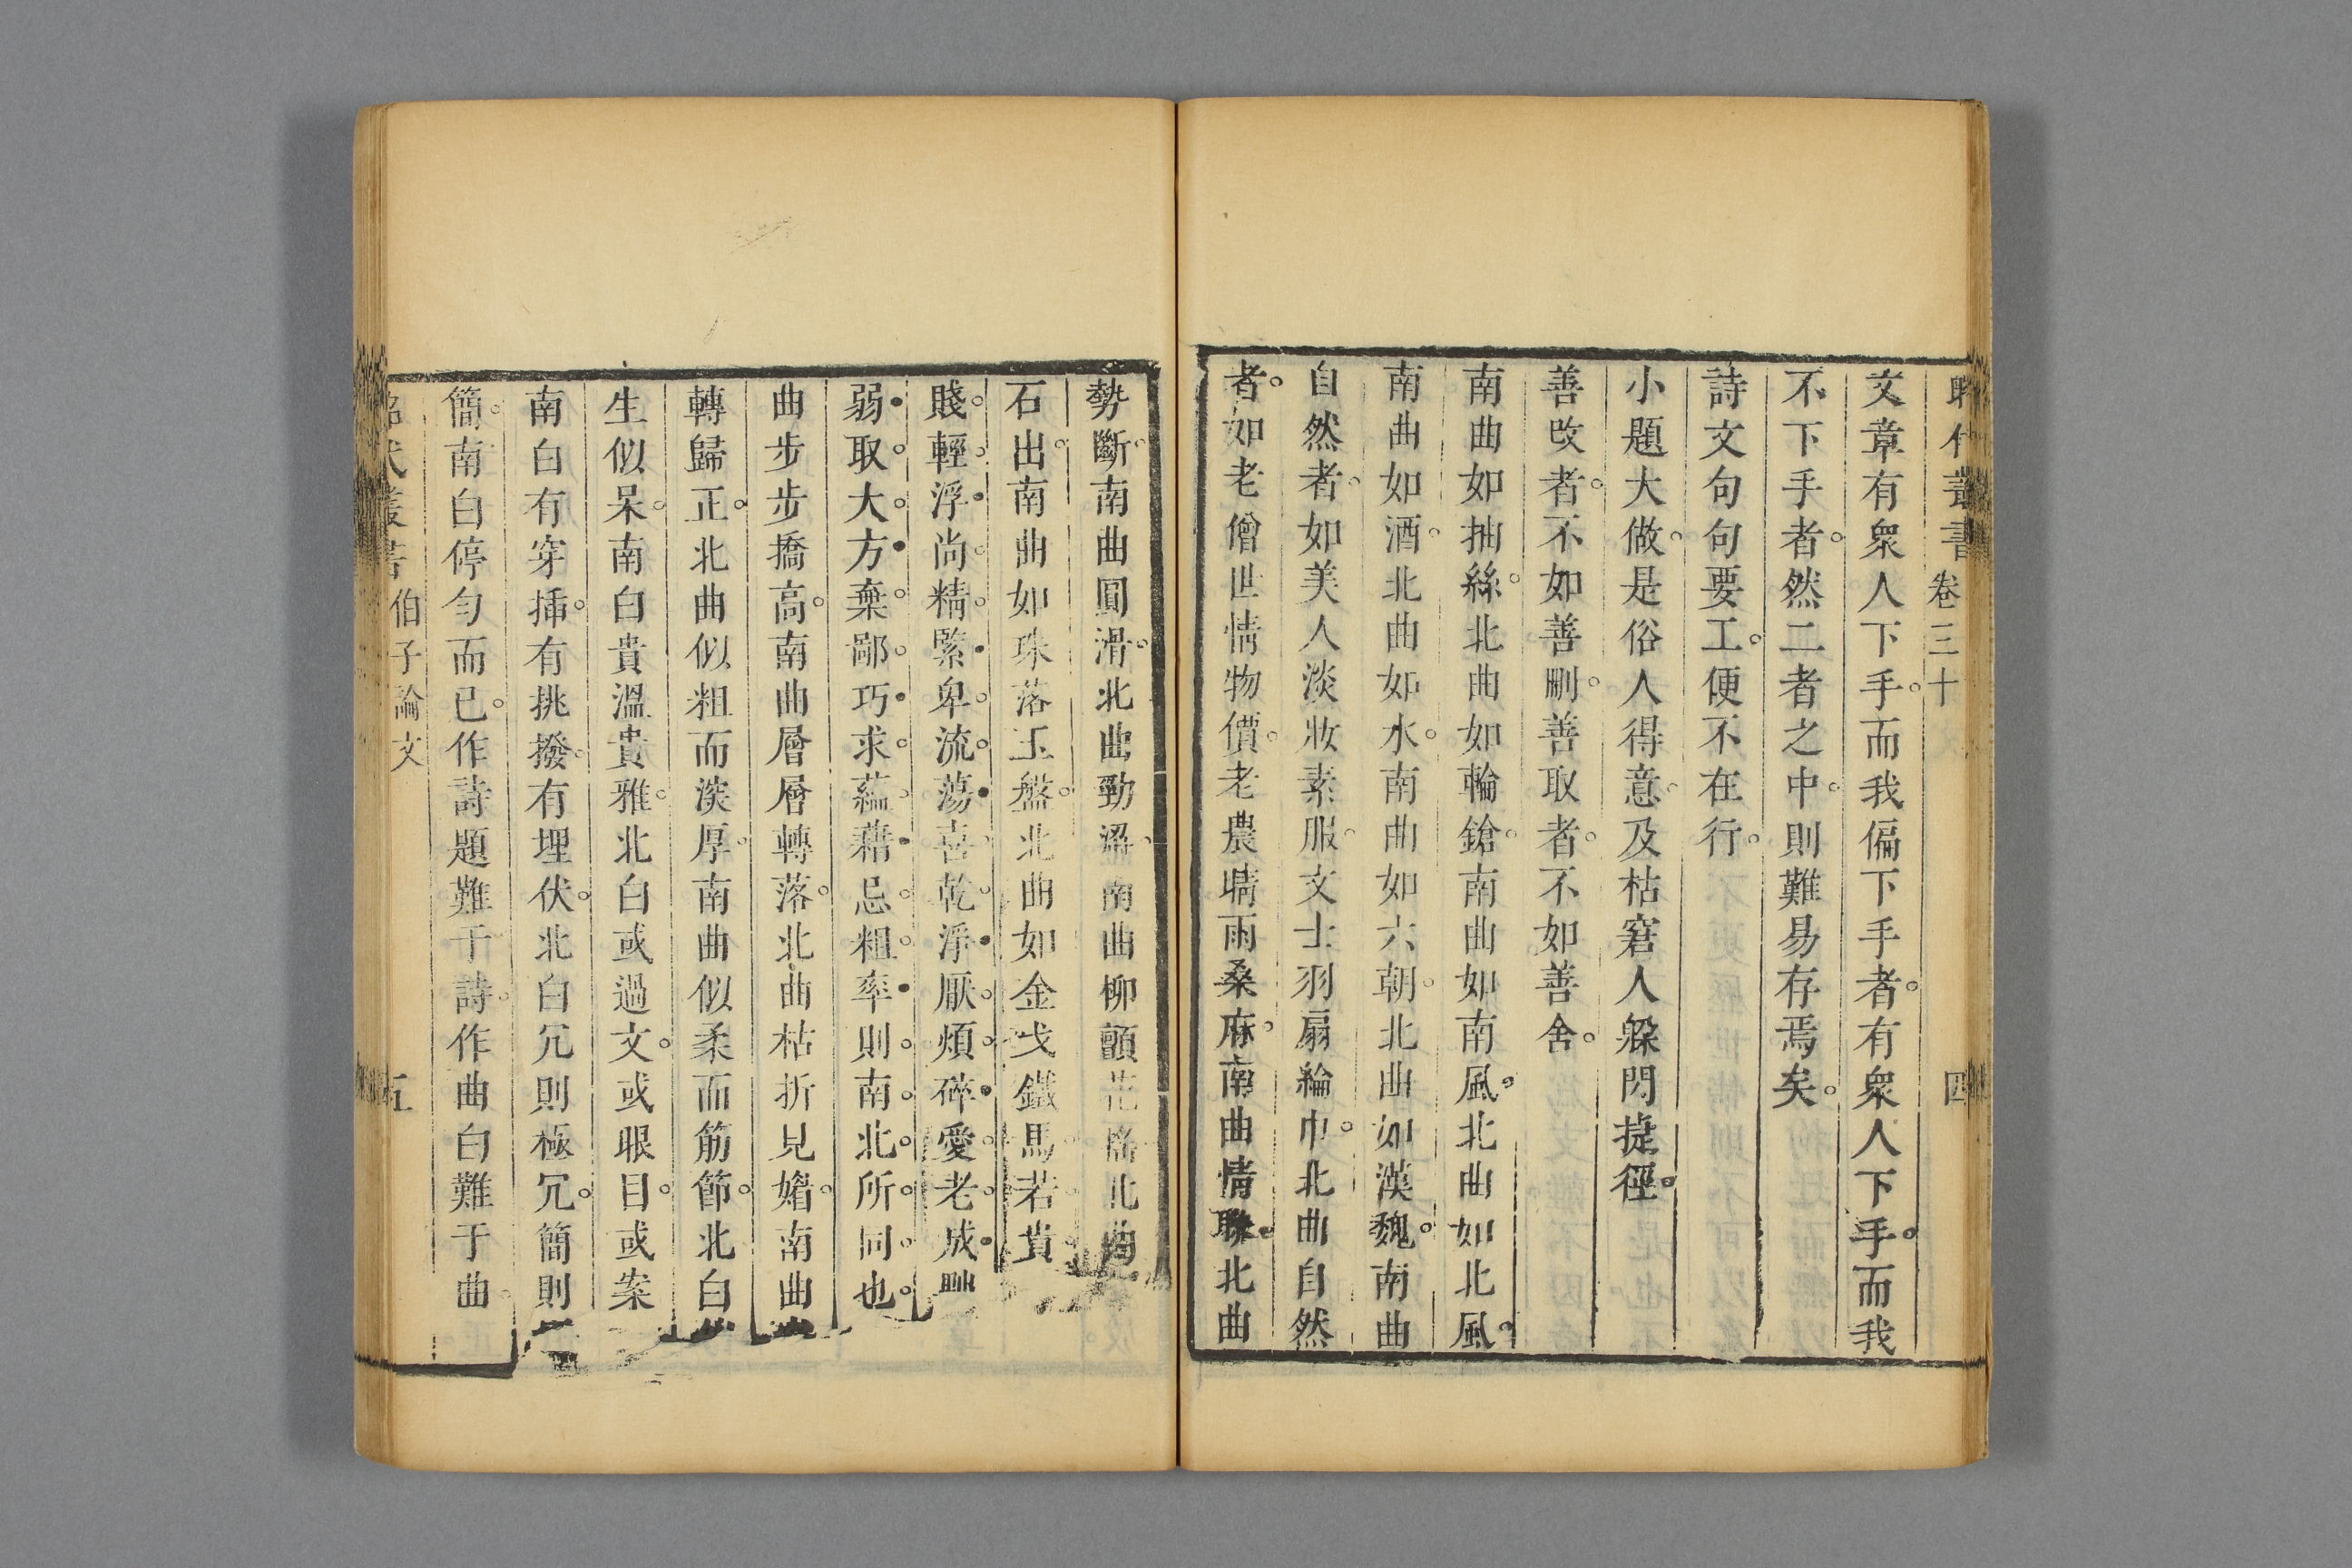 昭代叢書 卷三十 四
文章有衆人下手而我偏下手者有衆人下手而我
不下手者然二者之中則難易存焉矣
詩文句句要工便不在行
小題大做是俗人得意及枯窘人躱閃捷徑
善改者不如善刪善取者不如善舍
南曲如抽絲北曲如輪鎗南曲如南風北曲如北風
南曲如酒北曲如水南曲如六朝北曲如漢魏南曲
自然者如美人淡妝素服文士羽扇綸巾北曲自然
者如老僧世情物價老農晴雨桑麻南曲情聯北曲
勢斷南曲圓滑北曲勁澀南曲柳顫花搖北曲
石出南曲如珠落玉盤北曲如金戈鐵馬若貴
賤輕浮尚精緊卑流蕩喜乾淨厭煩碎愛老成
弱取大方棄鄙巧求蘊藉忌粗率則南北所同也
曲步步撟高南曲層層轉落北曲枯折見媚南曲
轉歸正北曲似粗而淡厚南曲似柔而筋節北白
生似呆南白貴溫貴雅北白或過文或眼目或案
南白有穿揷有挑撥有埋伏北白冗則極冗簡則
簡南白停勻而已作詩題難于詩作曲白難于曲
昭代叢書 伯子論文 五